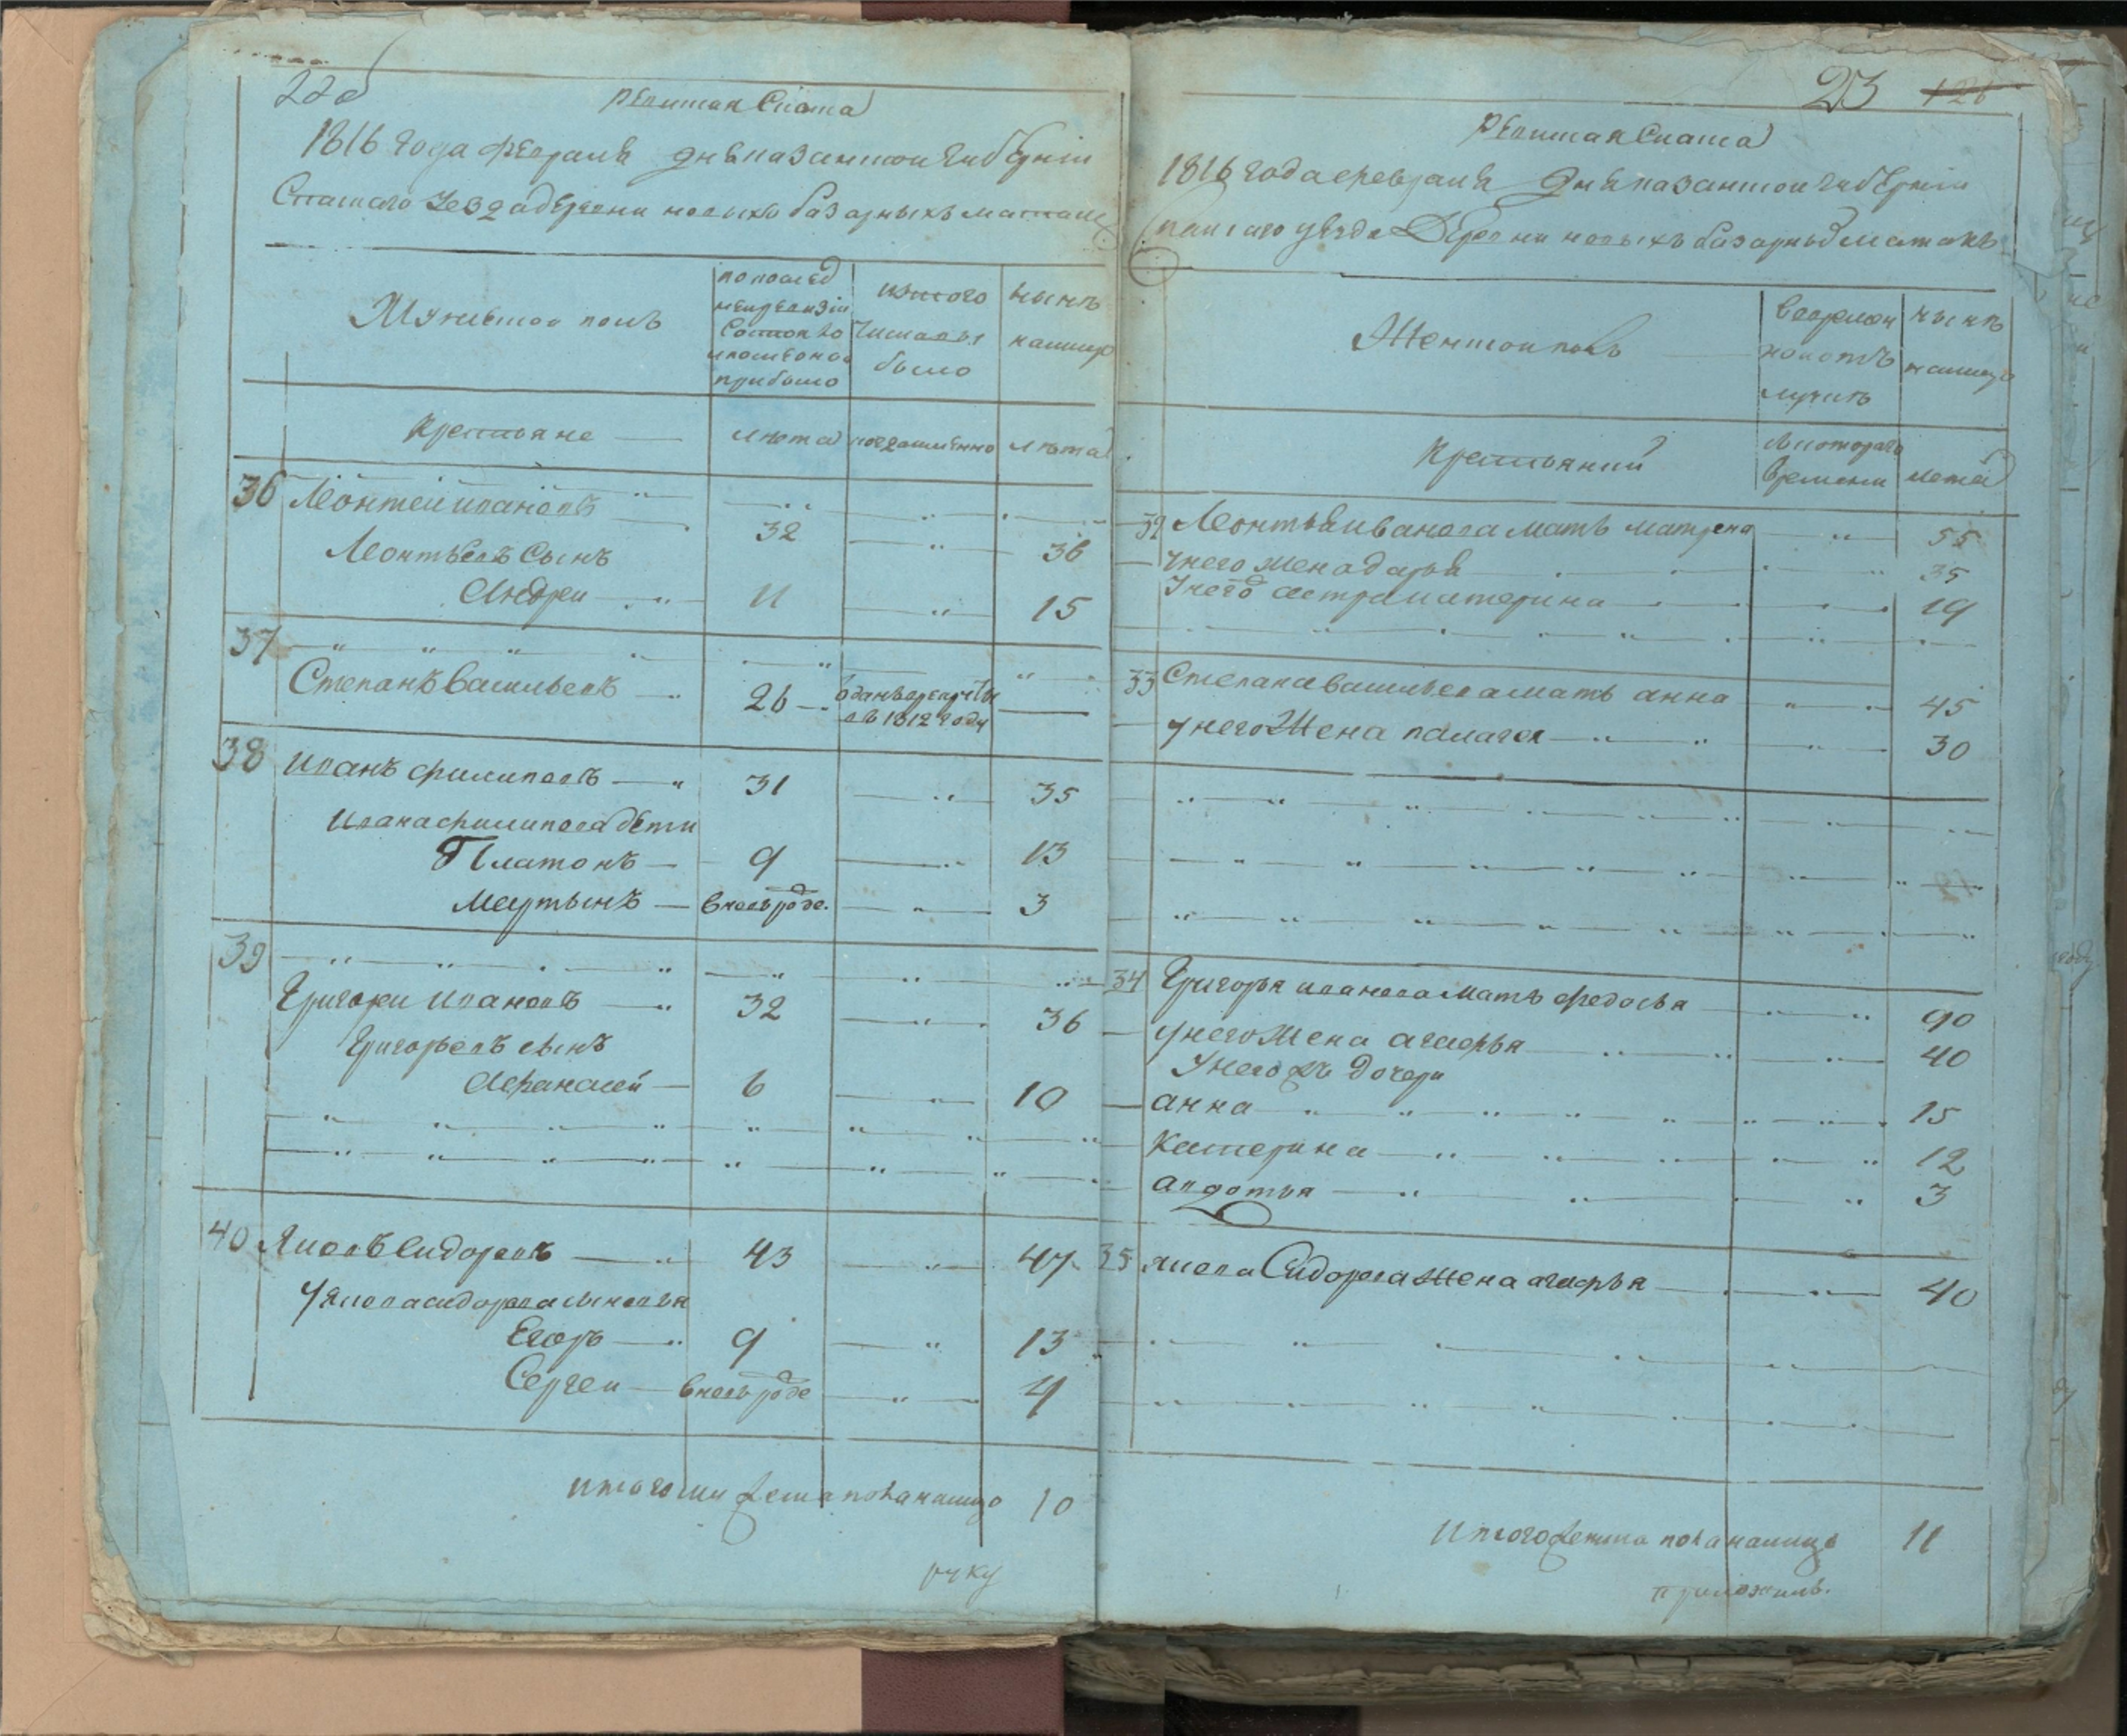 22об
Ревиская Скаска
1816 года февраля дня казанской губернiи
Спаскаго Уезда деревни новыхъ базарныхъ матакъ
Мужескои полъ
по послед
ней ревизiи
Состояло
и после оной
прибыло
изтого
Числа выб
было
ныне
налицо
Крестьяне
лета
когда имянно
лета
36 Леонтеи ивановъ 32 36
Леонтьевъ Сынъ
Андреи 11 15
37
Степанъ Васильевъ 26 отданъ врекруты
въ 1812 году
38 Иванъ филиповъ 31 35
Ивана филипова дети
Платонъ 9 13
Мартынъ вновь рожде. 3
39
Григореи Ивановъ 32 36
Григорьевъ сынъ
Афанасей 6 10
40 Яковъ Сидоровъ 43 47
У Якова сидорова сыновья
Егоръ 9 13
Сергеи вновь рожде 4
итого мужеска пола налицо 10
руку
23 126
Ревиская Скаска
1816 года февраля дня казанской губернiи
Спаскаго уезда Деревни новыхъ базарныхъ матакъ
Женскои полъ
Вовремен
ной отъ
лучке
ныне
налицо
Крестьянки
Скотораго
времени
лета
32 Леонтья иванова мать матрена 55
Унего жена дарья 35
Унего сестра катерина 19
33 Степана васильева мать анна 45
унего Жена палагея 30
34 Григорья иванова мать федосья 90
унего Жена агафья 40
Унего ж дочери
анна 15
Катерина 12
авдотья 3
35 якова Сидорова Жена агафья 40
Итого женска пола налицо 11
приложилъ.